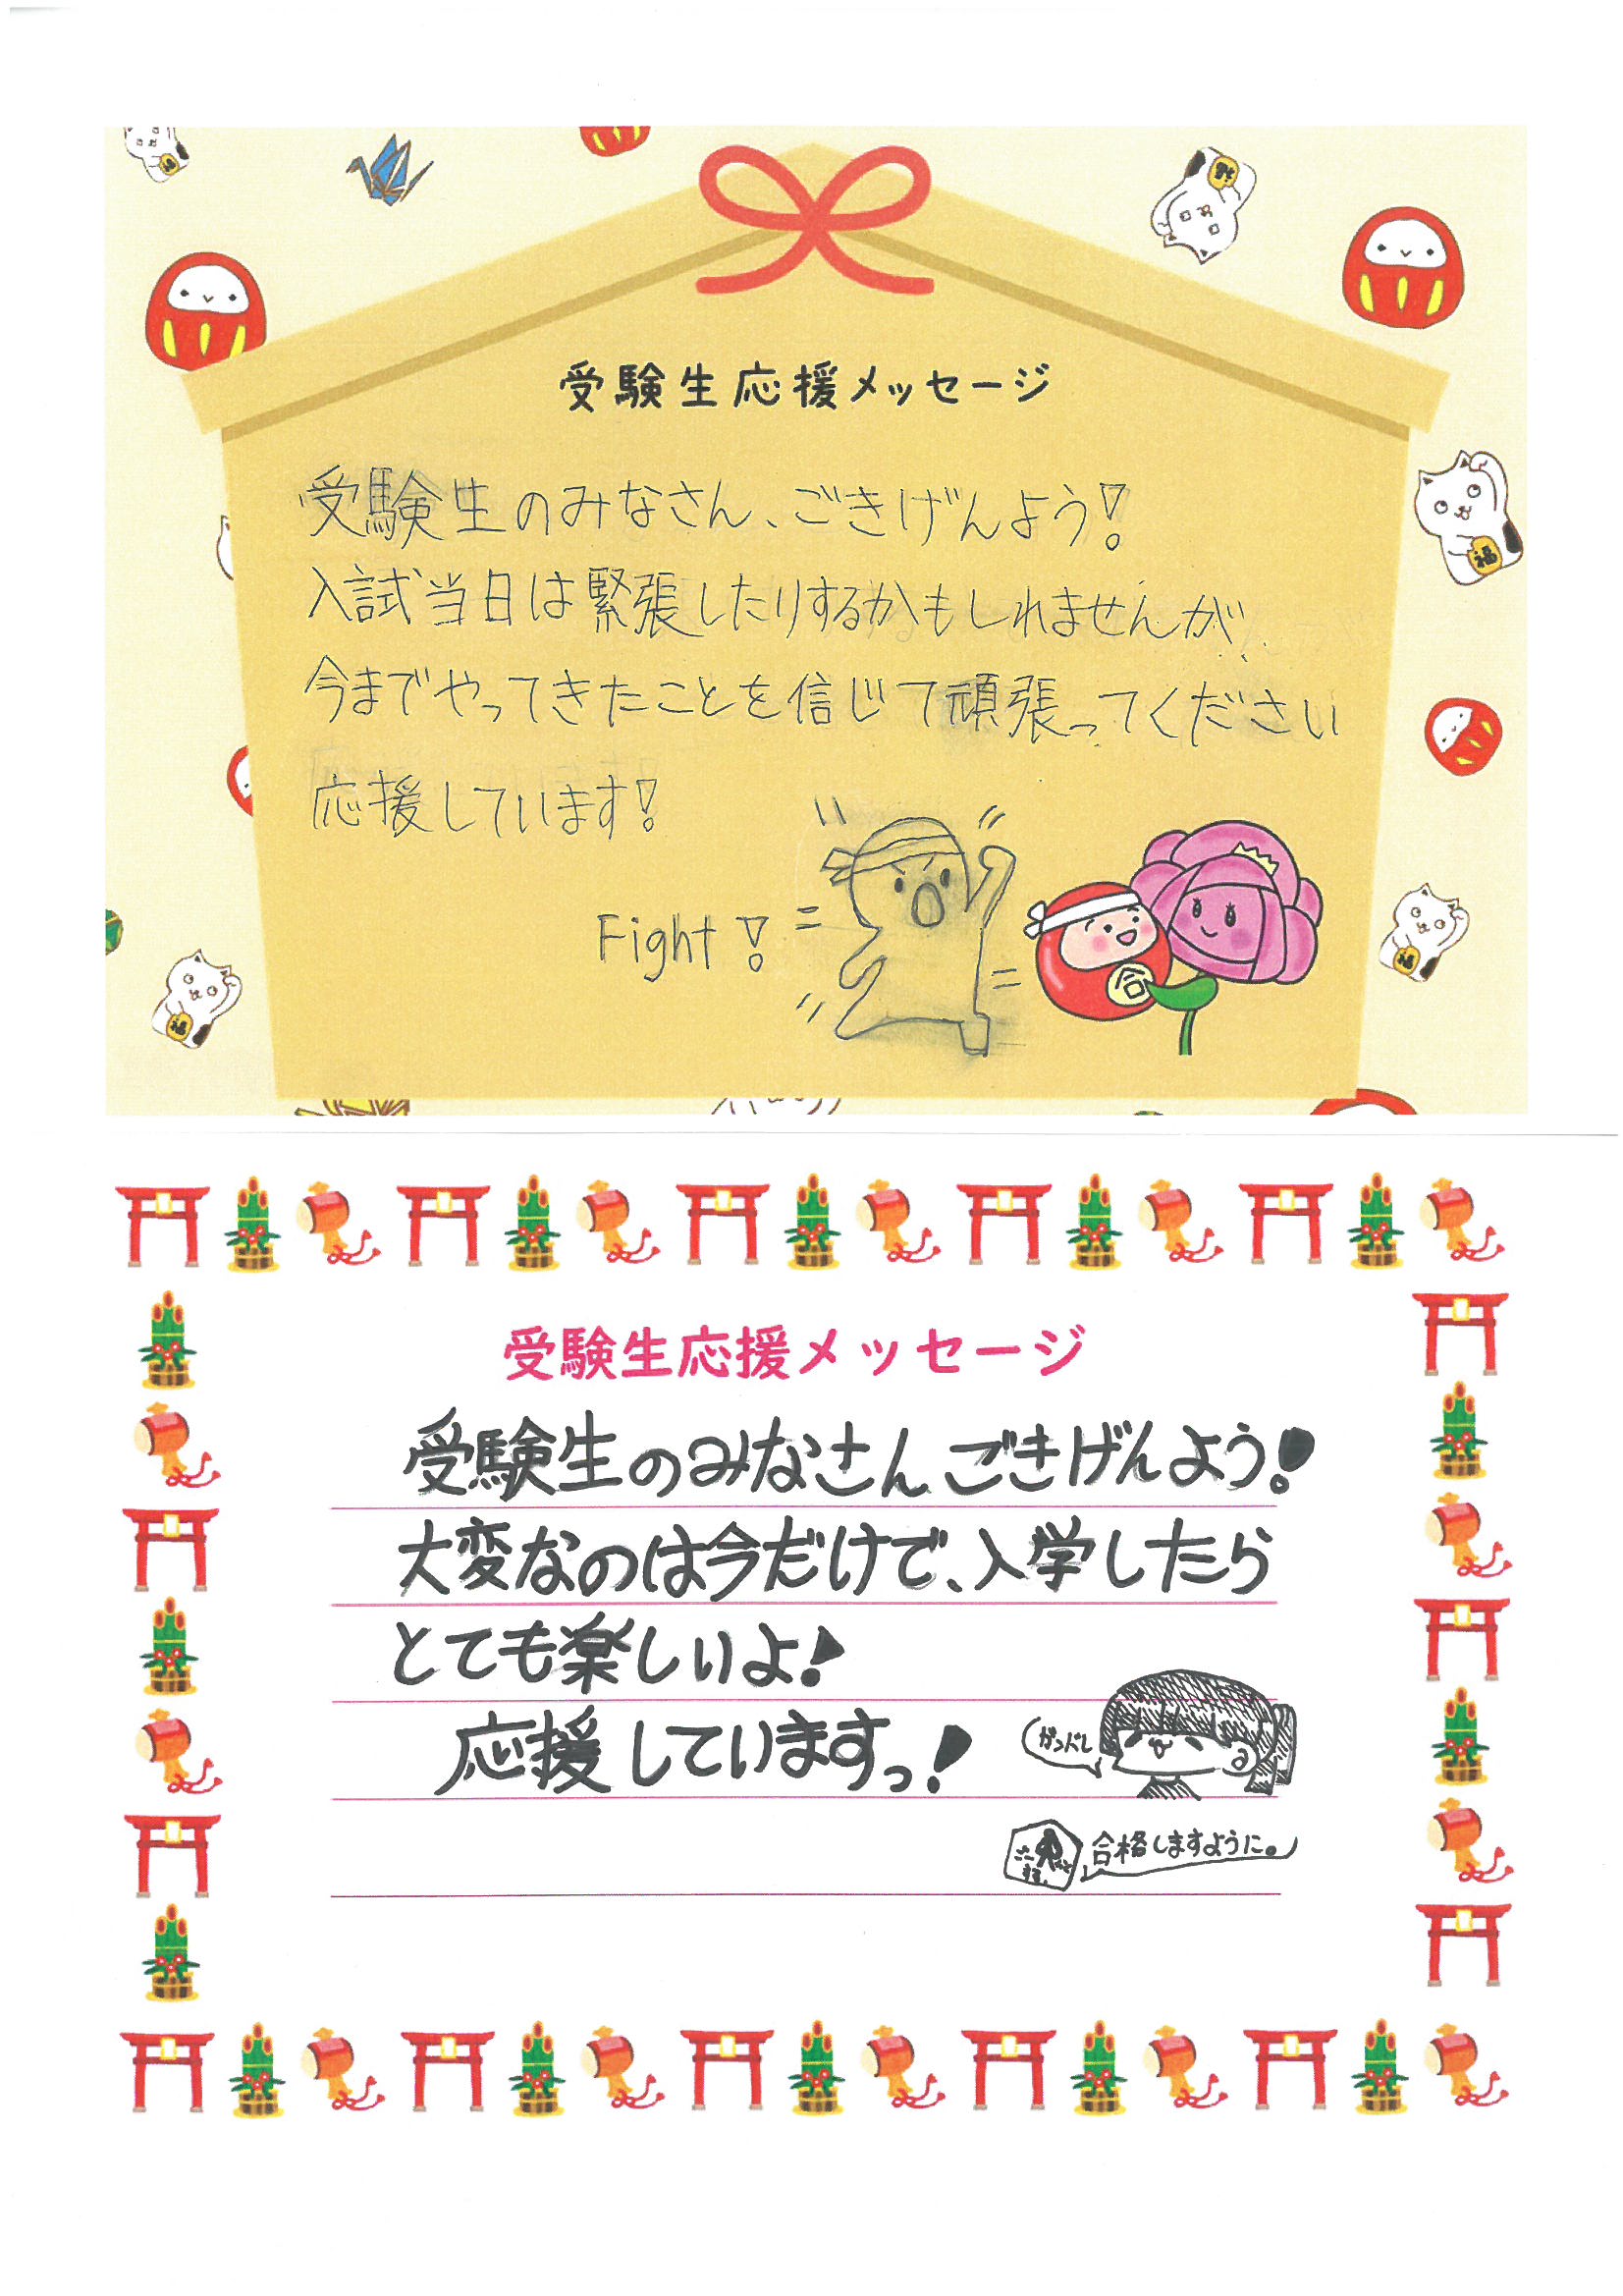 受験生応援メッセージ
受験生のみなさん、ごきげんよう!
入試当日は緊張したりするかもしれませんが
今までやってきたことを信じて頑張ってください
応援しています!
Fight!
合
福
受験生応援メッセージ
受験生のみなさんごきげんよう!
大変なのは今だけで、入学したら
とても楽しいよ!
応援していますっ!
ガンバレ
合格しますように。